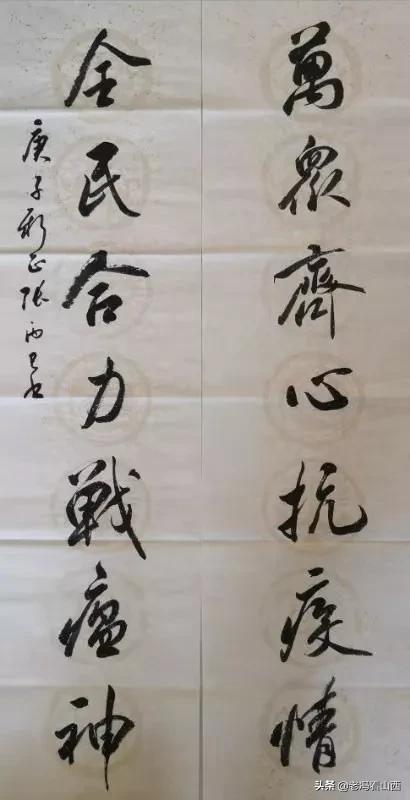 萬衆齊心抗疫情
全民合力戰瘟神
庚子新正張
头条 @老冯看山西